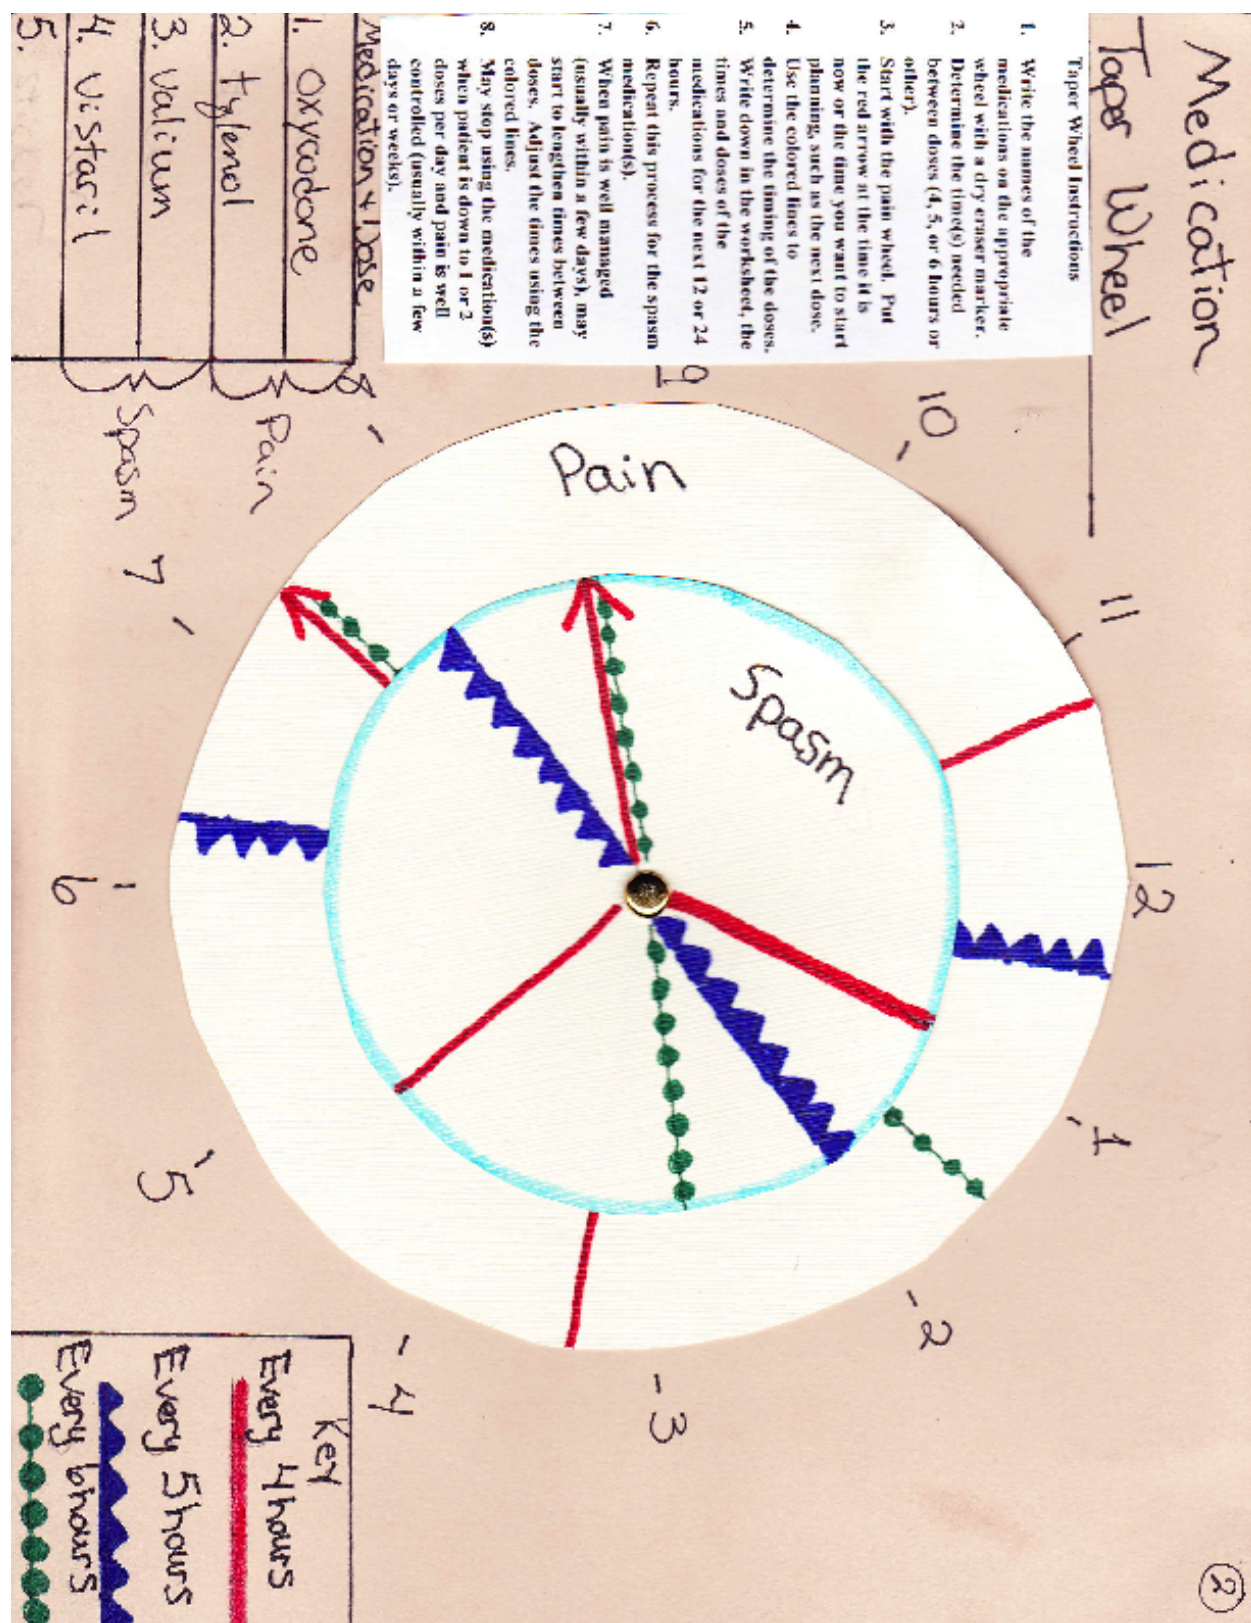 Medication
Taper Wheel
Taper Wheel Instructions
1. Write the names of the
medications on the appropriate
wheel with a dry eraser marker.
2. Determine the time(s) needed
between doses (4, 5, or 6 hours or
other).
3. Start with the pain wheel. Put
the red arrow at the time it is
now or the time you want to start
planning, such as the next dose.
4. Use the colored lines to
determine the timing of the doses.
5. Write down in the worksheet, the
times and doses of the
medications for the next 12 or 24
hours.
6. Repeat this process for the spasm
medication(s).
7. When pain is well managed
(usually within a few days), may
start to lengthen times between
doses. Adjust the times using the
colored lines.
8. May stop using the medication(s)
when patient is down to 1 or 2
doses per day and pain is well
controlled (usually within a few
days or weeks).
Medication + Dose
1. Oxycodone
2. tylenol
Pain
3. Valium
4. Vistaril
Spasm
5.
Pain
Spasm
12
1
2
3
4
5
6
7
8
9
10
11
Key
Every 4 hours
Every 5 hours
Every 6 hours
2